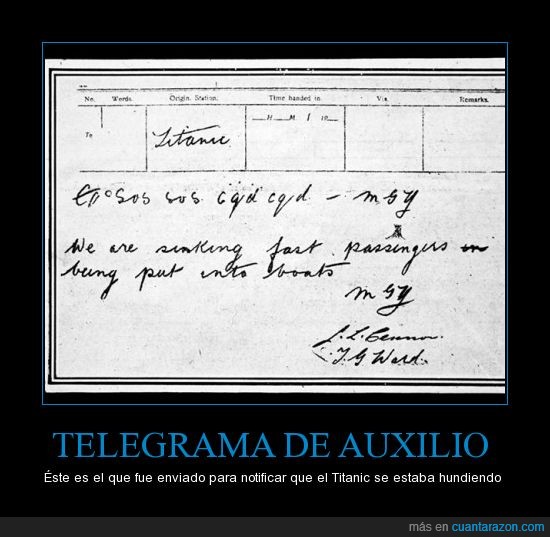 No. Words. Origin. Station. Time handed in. Via. Remarks.
To
Titanic
H. M. 19
SOS SOS cqd cqd - MGY
We are sinking fast passengers
being put into boats
MGY
T. G. Ward.
TELEGRAMA DE AUXILIO
Éste es el que fue enviado para notificar que el Titanic se estaba hundiendo
más en cuantarazon.com